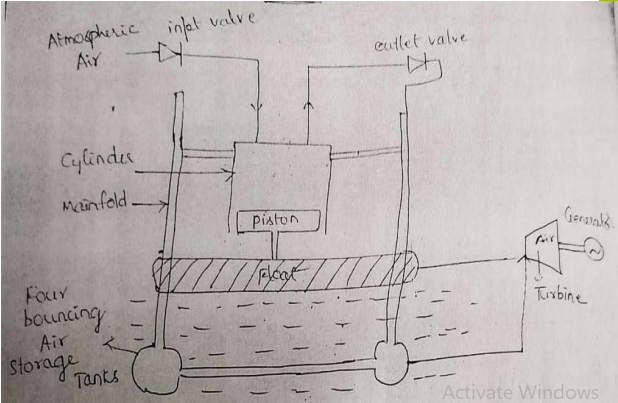 Atmospheric
Air
inlet valve
outlet valve
Cylinder
Mainfold
Piston
Float
Air
Turbine
Four
bouncing
Air
Storage
Tanks
Activate Windows